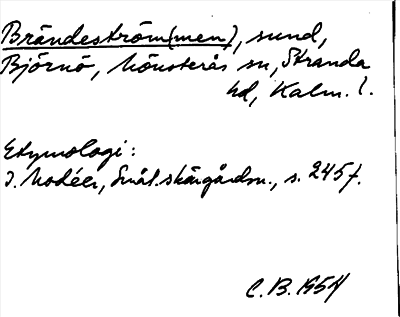 Brändeström(men), sund,
Björnö, Mönsterås sn, Stranda
hd, Kalm. l.
Etymologi:
I. Modéer, Smål. skärgårdsn., s. 245 f.
C.B. 1954